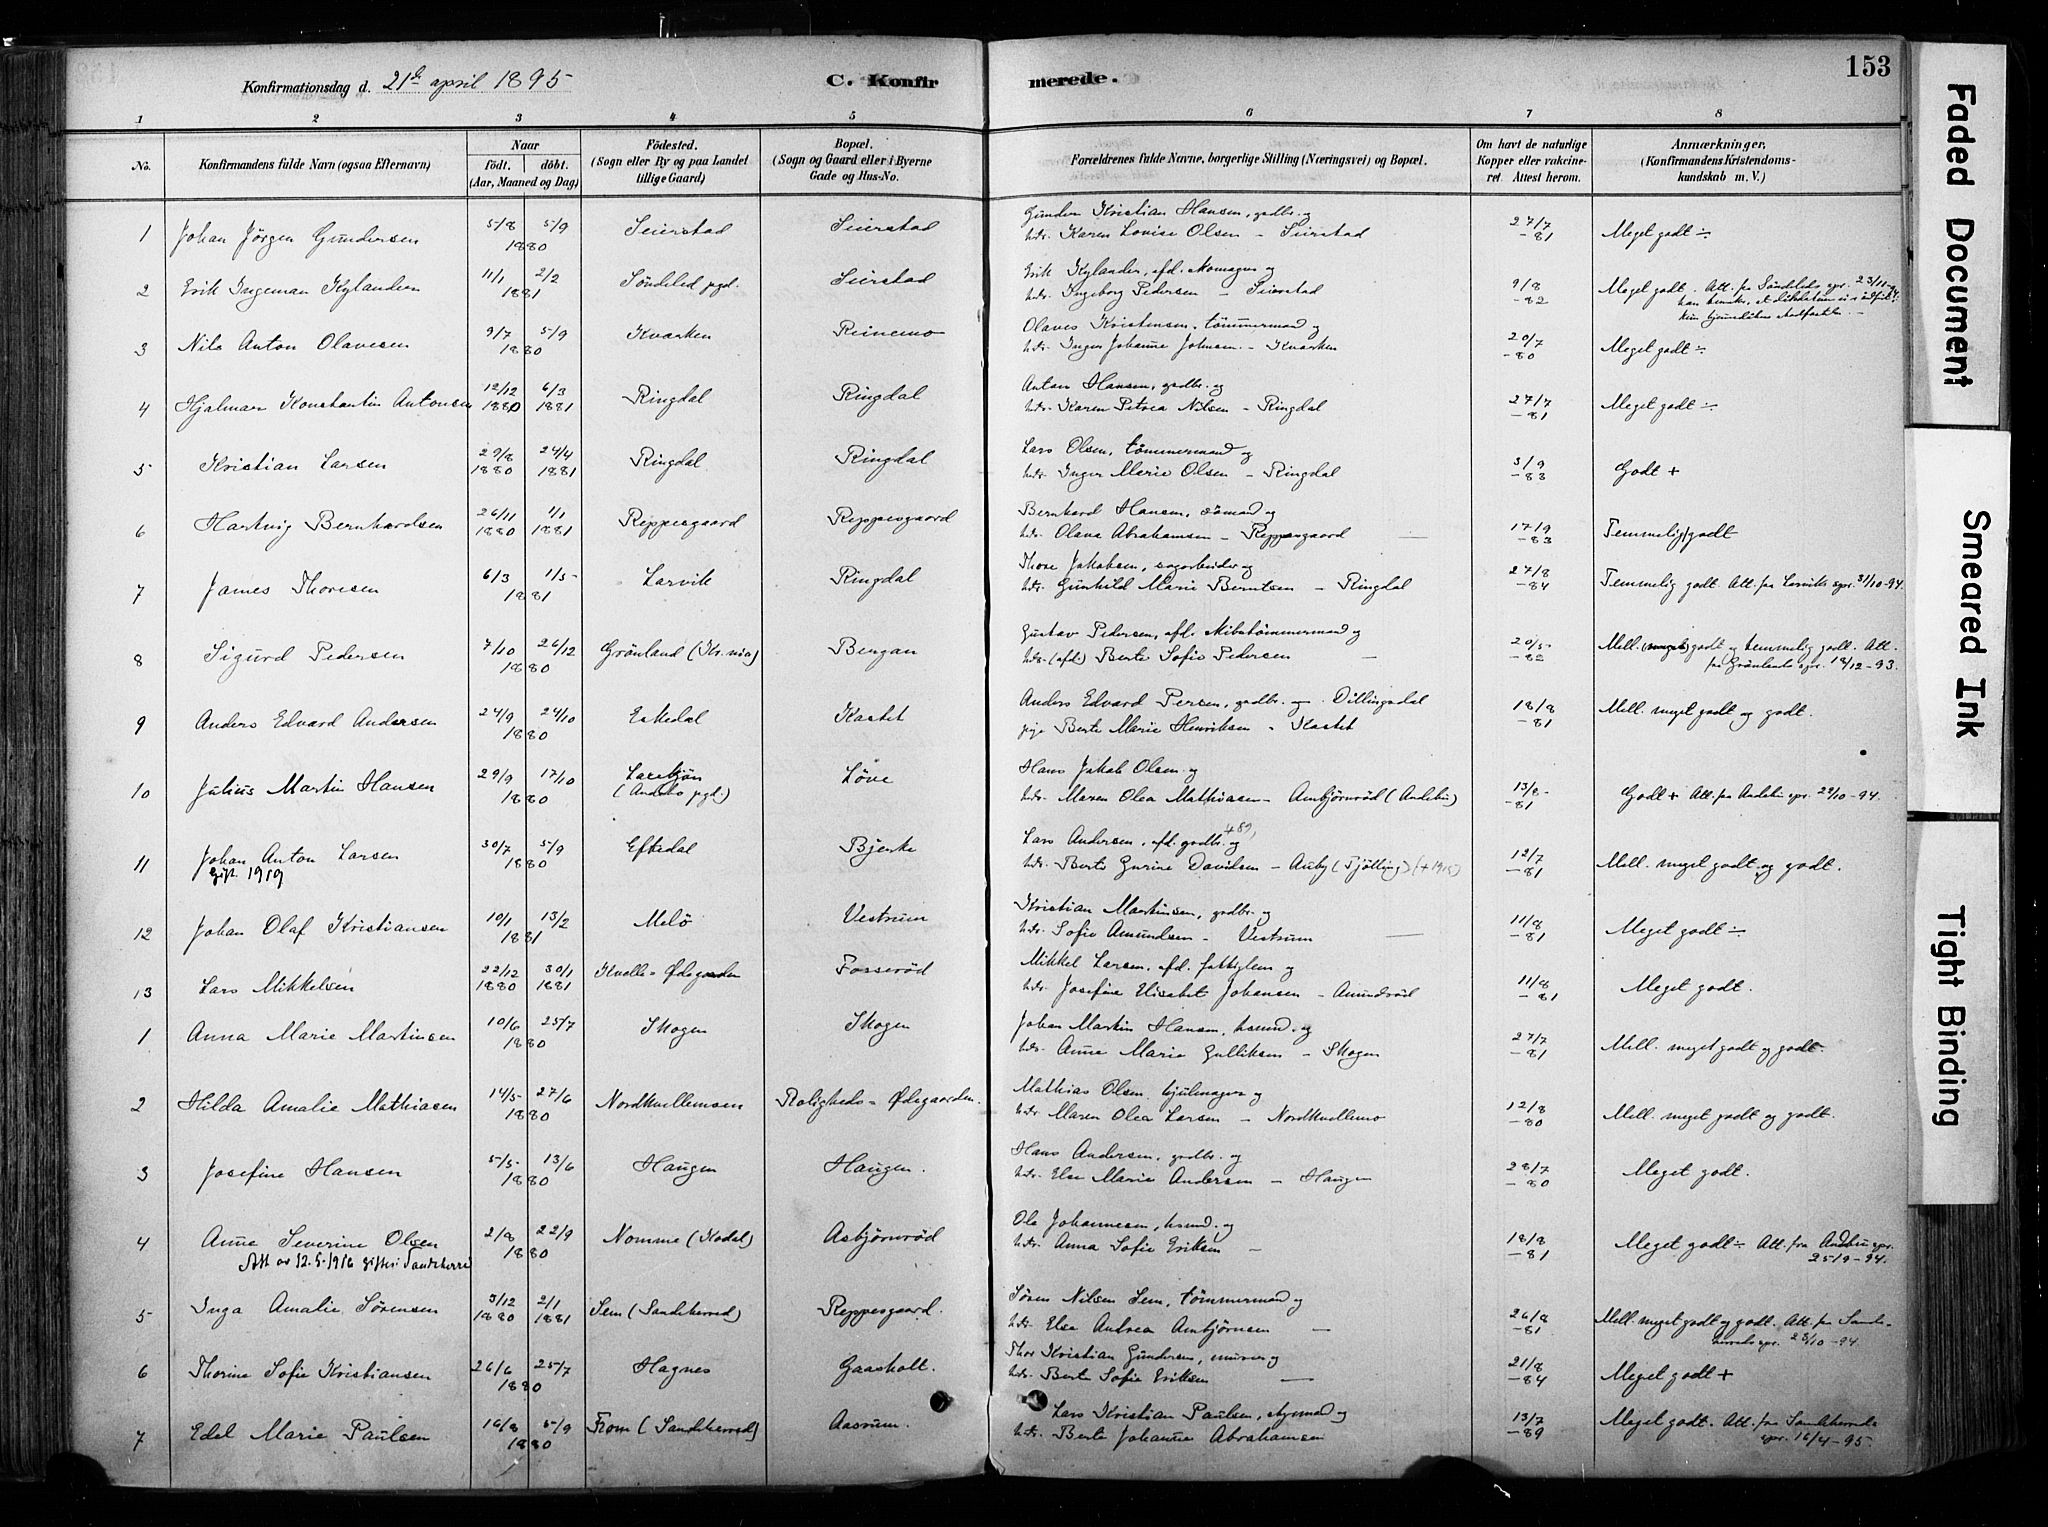 Konfirmationsdag d. 21de april 1895
C. Konfirmerede.
153
1 2 3 4 5 6 7 8
No.
Konfirmandens fulde Navn (ogsaa Efternavn)
Naar
födt. döbt.
(Aar, Maaned og Dag)
Födested.
(Sogn eller By og paa Landet
tillige Gaard)
Bopæl.
(Sogn og Gaard eller i Byerne
Gade og Hus-No.
Forældrenes fulde Navne, borgerlige Stilling (Næringsvei) og Bopæl.
Om havt de naturlige
Kopper eller vakcineret
Attest herom.
Anmærkninger,
(Konfirmandens Kristendomskundskab
m. V.)
1 Johan Jörgen Gundersen 5/8 5/9 1880 Seierstad Seierstad
Gunder Kristian Hansen, gadbr. og
htr. Karen Lovise Olsen – Seierstad 27/7 –81 Meget godt ÷
2 Erik Ingeman Kylander 11/1 2/2 1881 Söndeled pgd. Seierstad
Erik Kylander, afd. skomager og
htr. Ingeborg Pedersen – Seierstad 9/8 –82 Meget godt. Att. fra Söndeleds spr. 23/11
3 Nils Anton Olavesen 9/7 5/9 1880 Kvarken Reinemo
Olaves Kristensen, tömmermand og
htr. Inger Johanne Johnsen – Kvarken 20/7 –80 Meget godt ÷
4 Hjalmar Konstantin Antonsen 12/12 1880 6/3 1881 Ringdal Ringdal
Anton Hansen, gadbr. og
htr. Karen Petrea Nilsen – Ringdal 27/7 –81 Meget godt ÷
5 Kristian Larsen 29/8 1880 24/4 1881 Ringdal Ringdal
Lars Olsen, tömmermand og
htr. Inger Marie Olsen – Ringdal 3/9 –83 Godt +
6 Hartvig Bernhardsen 26/11 1880 1/1 1881 Reppesgaard Reppesgaard
Bernhard Hansen, sömand og
htr. Olava Abrahamsen – Reppesgaard – 17/9 –83 Temmelig godt
7 James Thoresen 6/3 1/5 1881 Larvik Ringdal
Thore Jakobsen, sagarbeider og
htr. Gunhild Marie Berntsen – Ringdal 27/8 –84 Temmelig godt. Att. fra Larviks spr. 31/10–94.
8 Sigurd Pedersen 7/10 26/12 1880 Grönland (Kr.nia) Bergan
Gustav Pedersen, afd. skibstömmermand og
htr. (afd.) Berte Sofie Pedersen – 20/5 –82 Mell. (meget) godt og temmelig godt. Att.
fra Grönlands spr. 18/12–93.
9 Anders Edvard Andersen 24/9 24/10 1880 Eskedal Kastet
Anders Edvard Persen, gadbr. og – Dillingsdal
pige Berte Marie Henriksen – Kastet 18/8 –81 Mell. meget godt og godt.
10 Julius Martin Hansen 29/9 17/10 1880 (Andebo pgd.) Löve
Hans Jakob Olsen og
htr. Maren Olea Mathiasen – Ambjörnröd (Andebu) 13/8 –81 Godt + Att. fra Andebu spr. 29/10–94.
11 Johan Anton Larsen 30/7 5/9 1880 Eftedal Bjerke
Gift 1919
Lars Andersen, afd. gadbr. +89, og
htr. Berte Gurine Davidsen – Auby (Tjölling) (+1915) 12/7 –81 Mell. meget godt og godt.
12 Johan Olaf Kristiansen 10/1 13/2 1881 Melö Vestrum
Kristian Martinsen, gadbr. og
htr. Sofie Amundsen – Vestrum – 11/8 –81 Meget godt ÷
13 Lars Mikkelsen 22/12 1880 30/1 1881 Kvelle=Ödegaarden Forseröd
Mikkel Larsen, afd. fattiglem og
htr. Josefine Elisabet Johansen – Amundröd 11/8 –81 Meget godt.
1 Anna Marie Martinsen 10/6 25/7 1880 Skogen Skogen
Johan Martin Hansen, husmd. og
htr. Anne Marie Gulliksen – Skogen 27/7 –81 Mell. meget godt og godt.
2 Hilda Amalie Mathiasen 14/5 27/6 1880 Nordkvellemoen Roligheds=Ödegaarden.
Mathias Olsen, hjulmager og
htr. Maren Olea Larsen – Nordkvellemo 12/8 –80 Mell. meget godt og godt.
3 Josefine Hansen 5/5 13/6 1880 Haugen Haugen.
Hans Andersen, gadbr. og
htr. Else Marie Andersen – Haugen 28/7 –80 Meget godt.
4 Anne Severine Olsen 2/8 22/9 1880 Nomme (Kodal) Asbjörnröd
Att av 12.5.1916 giftes i Sandeherred
Ole Johannesen, husmd. og
htr. Anna Sofie Eriksen – 18/8 –81 Meget godt ÷ Att. fra Andebu spr.
25/9–94.
5 Inga Amalie Sörensen 3/12 1880 2/1 1881 Sem (Sandeherred) Reppesgaard.
Sören Nilsen Sem, tömmermand og
htr. Else Andrea Ambjörnsen – 26/8 –81 Mell. meget godt og godt. Att. fra Sandeherreds
spr. 23/10–94.
6 Thorine Sofie Kristiansen 26/6 25/7 1880 Hagnes Gaasholt.
Thor Kristian Gundersen, murer og
htr. Berte Sofie Eriksen – 21/8 –84 Meget godt +
7 Edel Marie Paulsen 16/8 5/9 1880 Fkom (Sandeherred) Aasrum.
Lars Kristian Paulsen, styrmand og
htr. Berte Johanne Abrahamsen 13/7 –89 Meget godt. Att. fra Sandeherreds
spr. 16/4–95.
Faded Document
Smeared Ink
Tight Binding